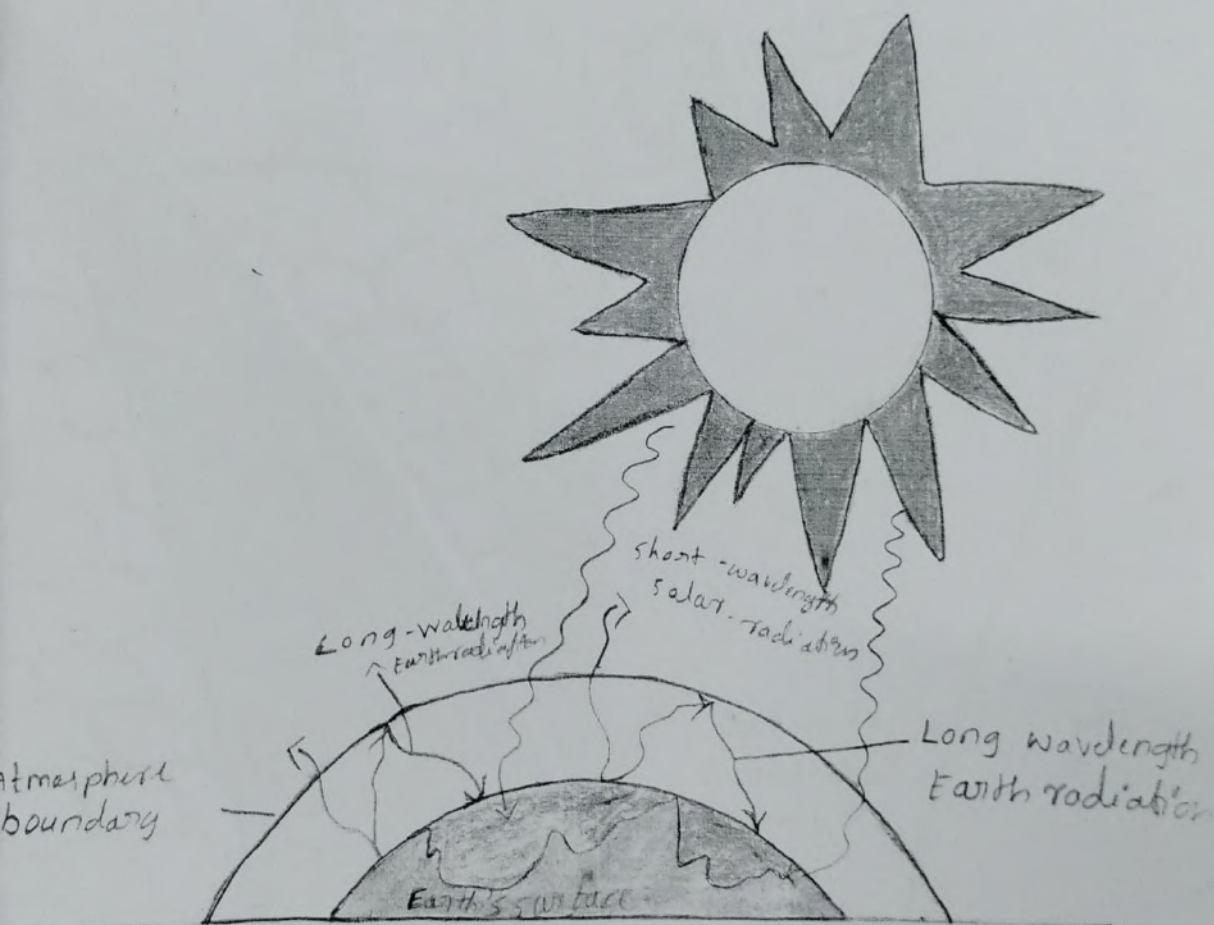 Short-wavelength
Solar-radiation
Long-wavelength
Earth radiation
Atmosphere
boundary
Long wavelength
Earth radiation
Earth's surface